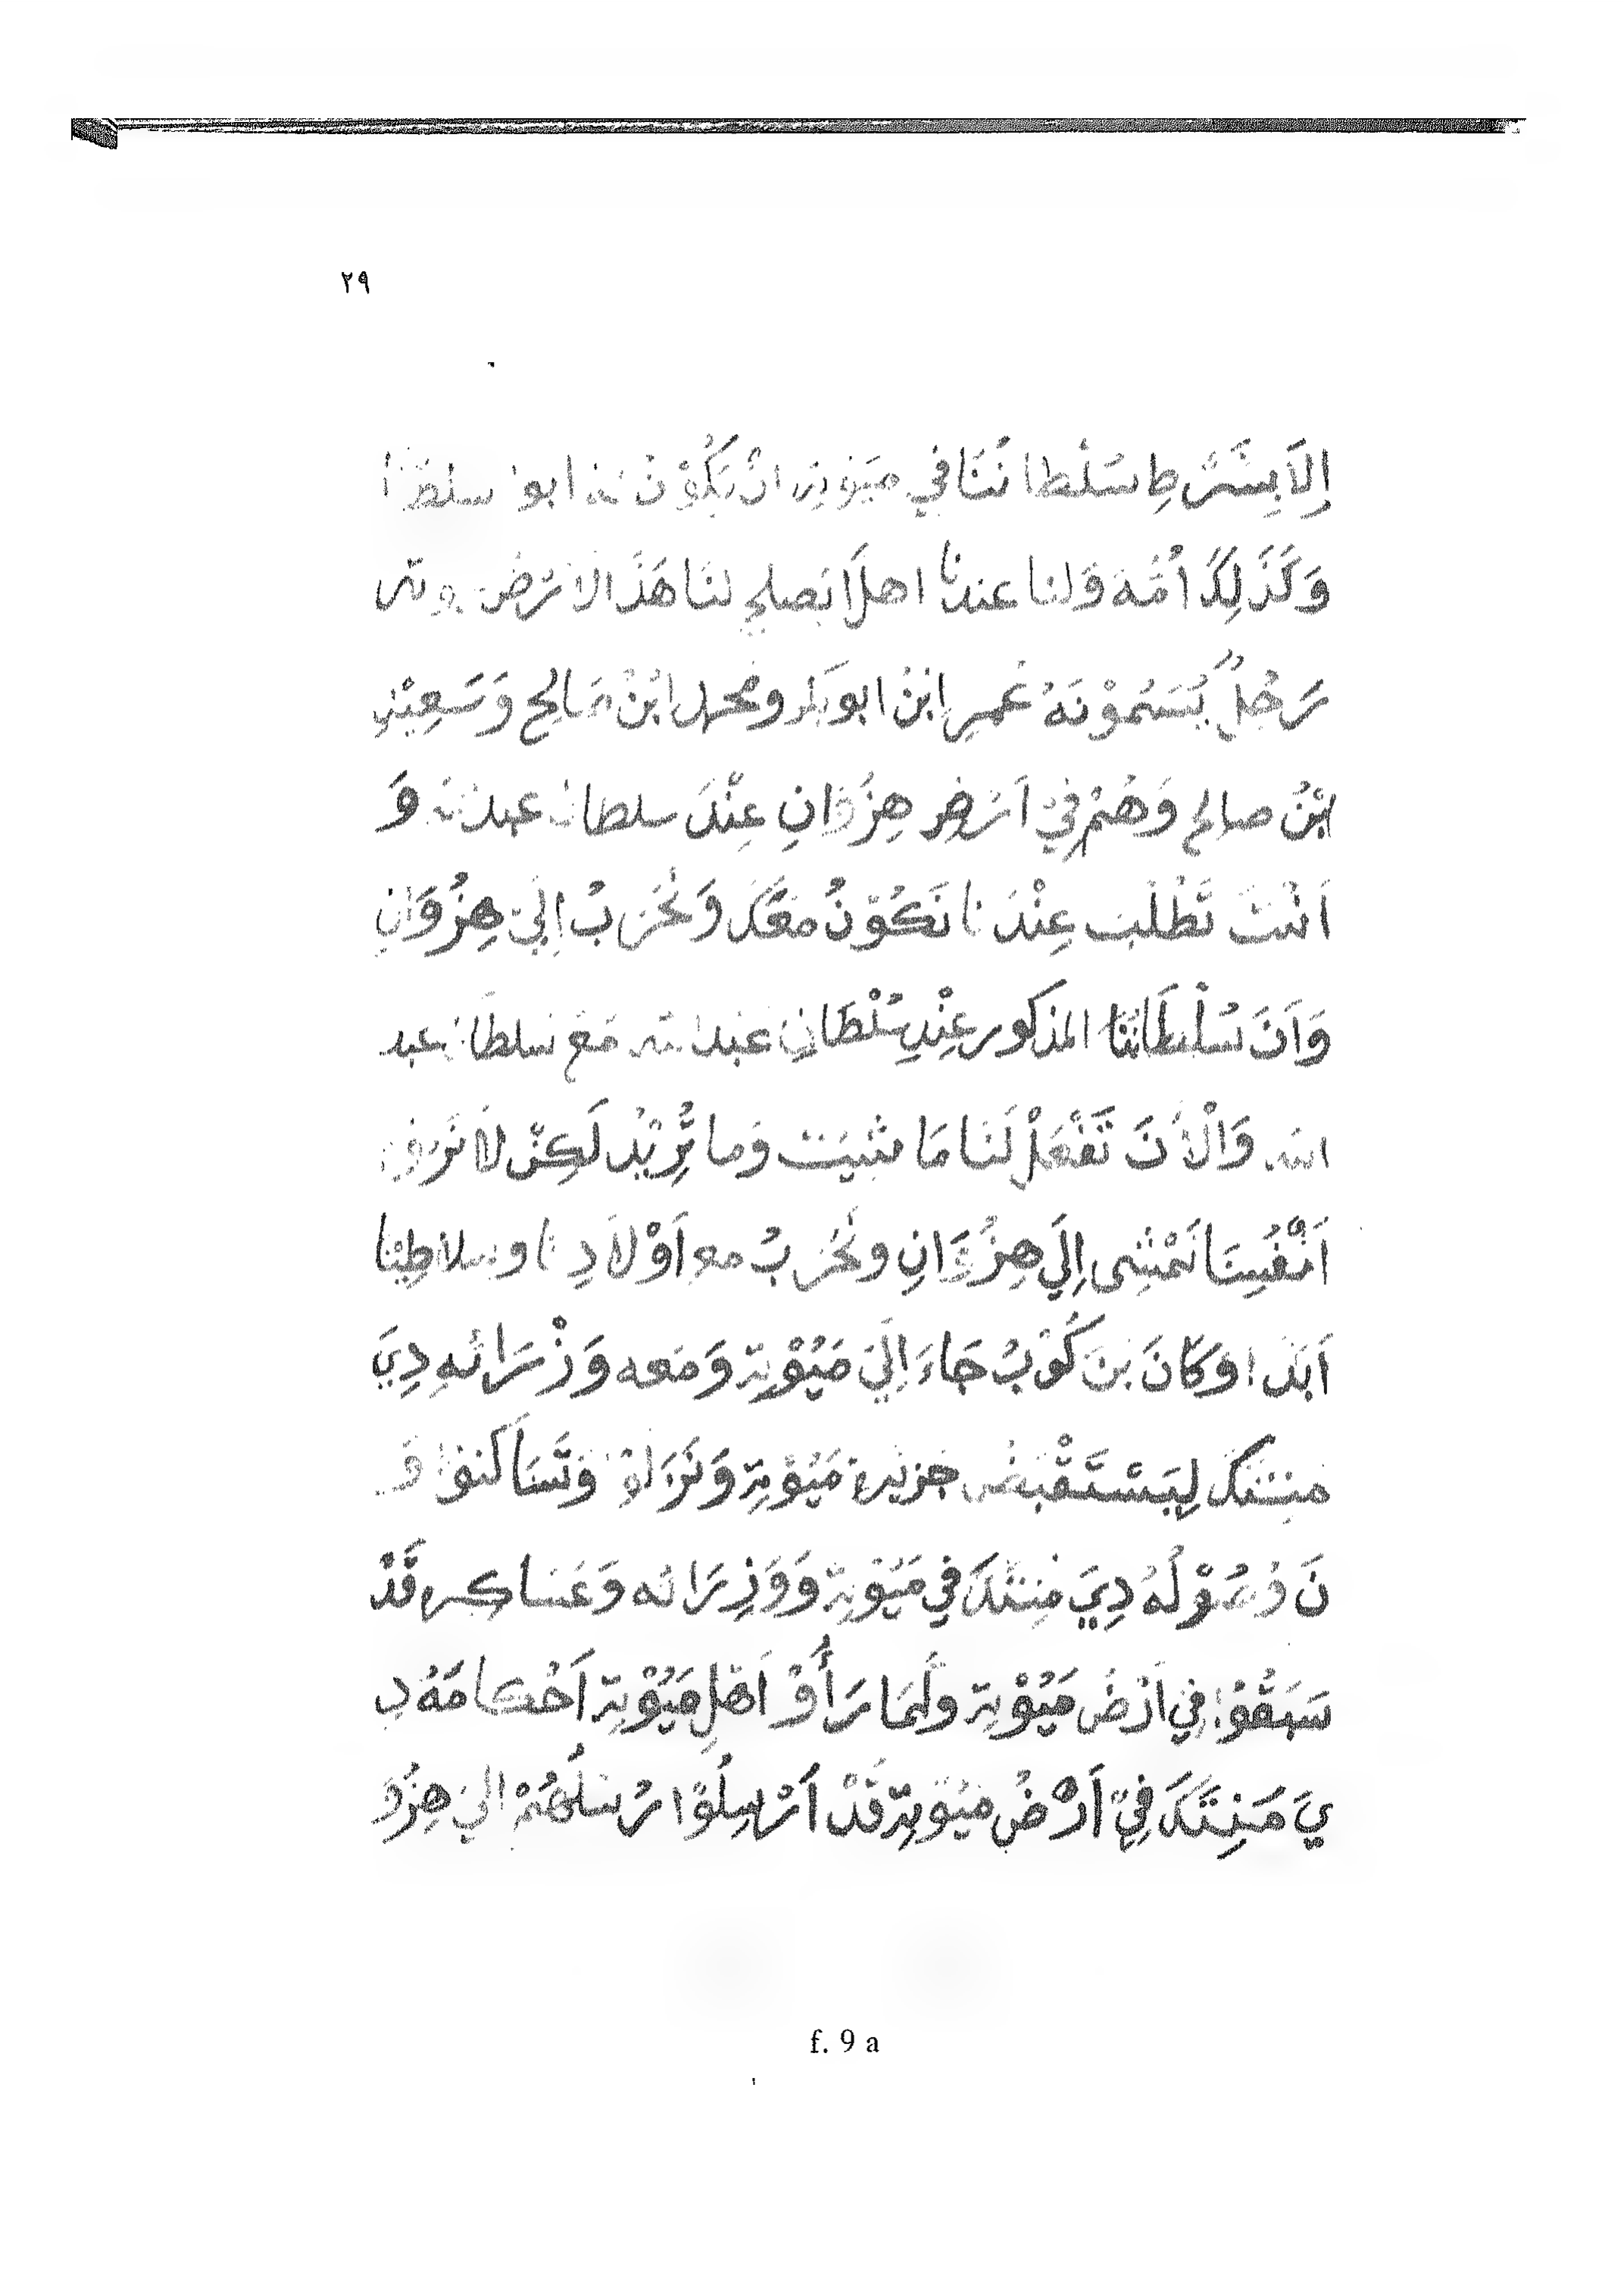 ٢٩
إِلَّا بِشَرْطِ سُلْطَانُنَا فِي مَيُوْتِهْ اَنْ يَكُوْنَ ابوا سلطانا
وَكَذَلِكَ اُمُّهُ وَلنا عندنا اهلًا تصلح لنَا هَذَا الاَرْضْ
رَجُلٌ يُسَمُوْنَهُ عُمرِ ابنُ ابوبكر ومُحمد ابْنُ صَالِحْ وَسَعِيْدِ
ابْنُ صالح وَهُمْ فِيْ اَرْضِ هِزُوَانِ عِنْدَ سلطان عبد الله وَ
اَنْتَ تَطْلُبَ عِنْدَنَا نَكُوْنُ مَعَكَ وَنُحَرِبُ اِلَيْ هِزُوَانِ
وَاَنَّ سُلْطَانُنَا المذكور عِنْدِ سُلْطَانِ عَبدالله مَعَ سلطان عبد
الله وَالْأَنَ تَفْعَلْ لَنَا مَا شئيت وَما تُرِيْد لَكِنْ لَا
اَنْفُسِنَا نَمْشِى اِلَي هِزُوَانِ ونُحَرِبُ مع اَوْلَادِنَا وسلاطِيْنا
اَبَدًا وَكَانَ بنَ كُوْبُ جَاءَ اِلَيَ مَيُوْتِهْ وَمَعه وَزْرَائهِ دِيَ
مِنتَكَ لِيَسْتَقْبِضْ جَزيره مَيُوْتِهْ وَنَزَلُوْا وَتَسَاكَنوْا وَ
نَ وُصُوْلُهُ دِيَ مِنتَكَ فِي مَيُوْتِهْ وَوَزِرَائه وَعَسَاكِرِه قَدْ
سَبَقُوْا فِي اَرْضْ مَيُوْتِهْ ولَمَا رَأُوْ اَهْلِ مَيُوْتِهْ اَحْكَامَهُ دِ
يَ مَنِتَكَ فِيْ اَرْضْ مَيُوْتِهْ قَدْ اَرْسِلُوْا رُسُلُهُمْ اِلَيَ هِزُوَ
f. 9 a